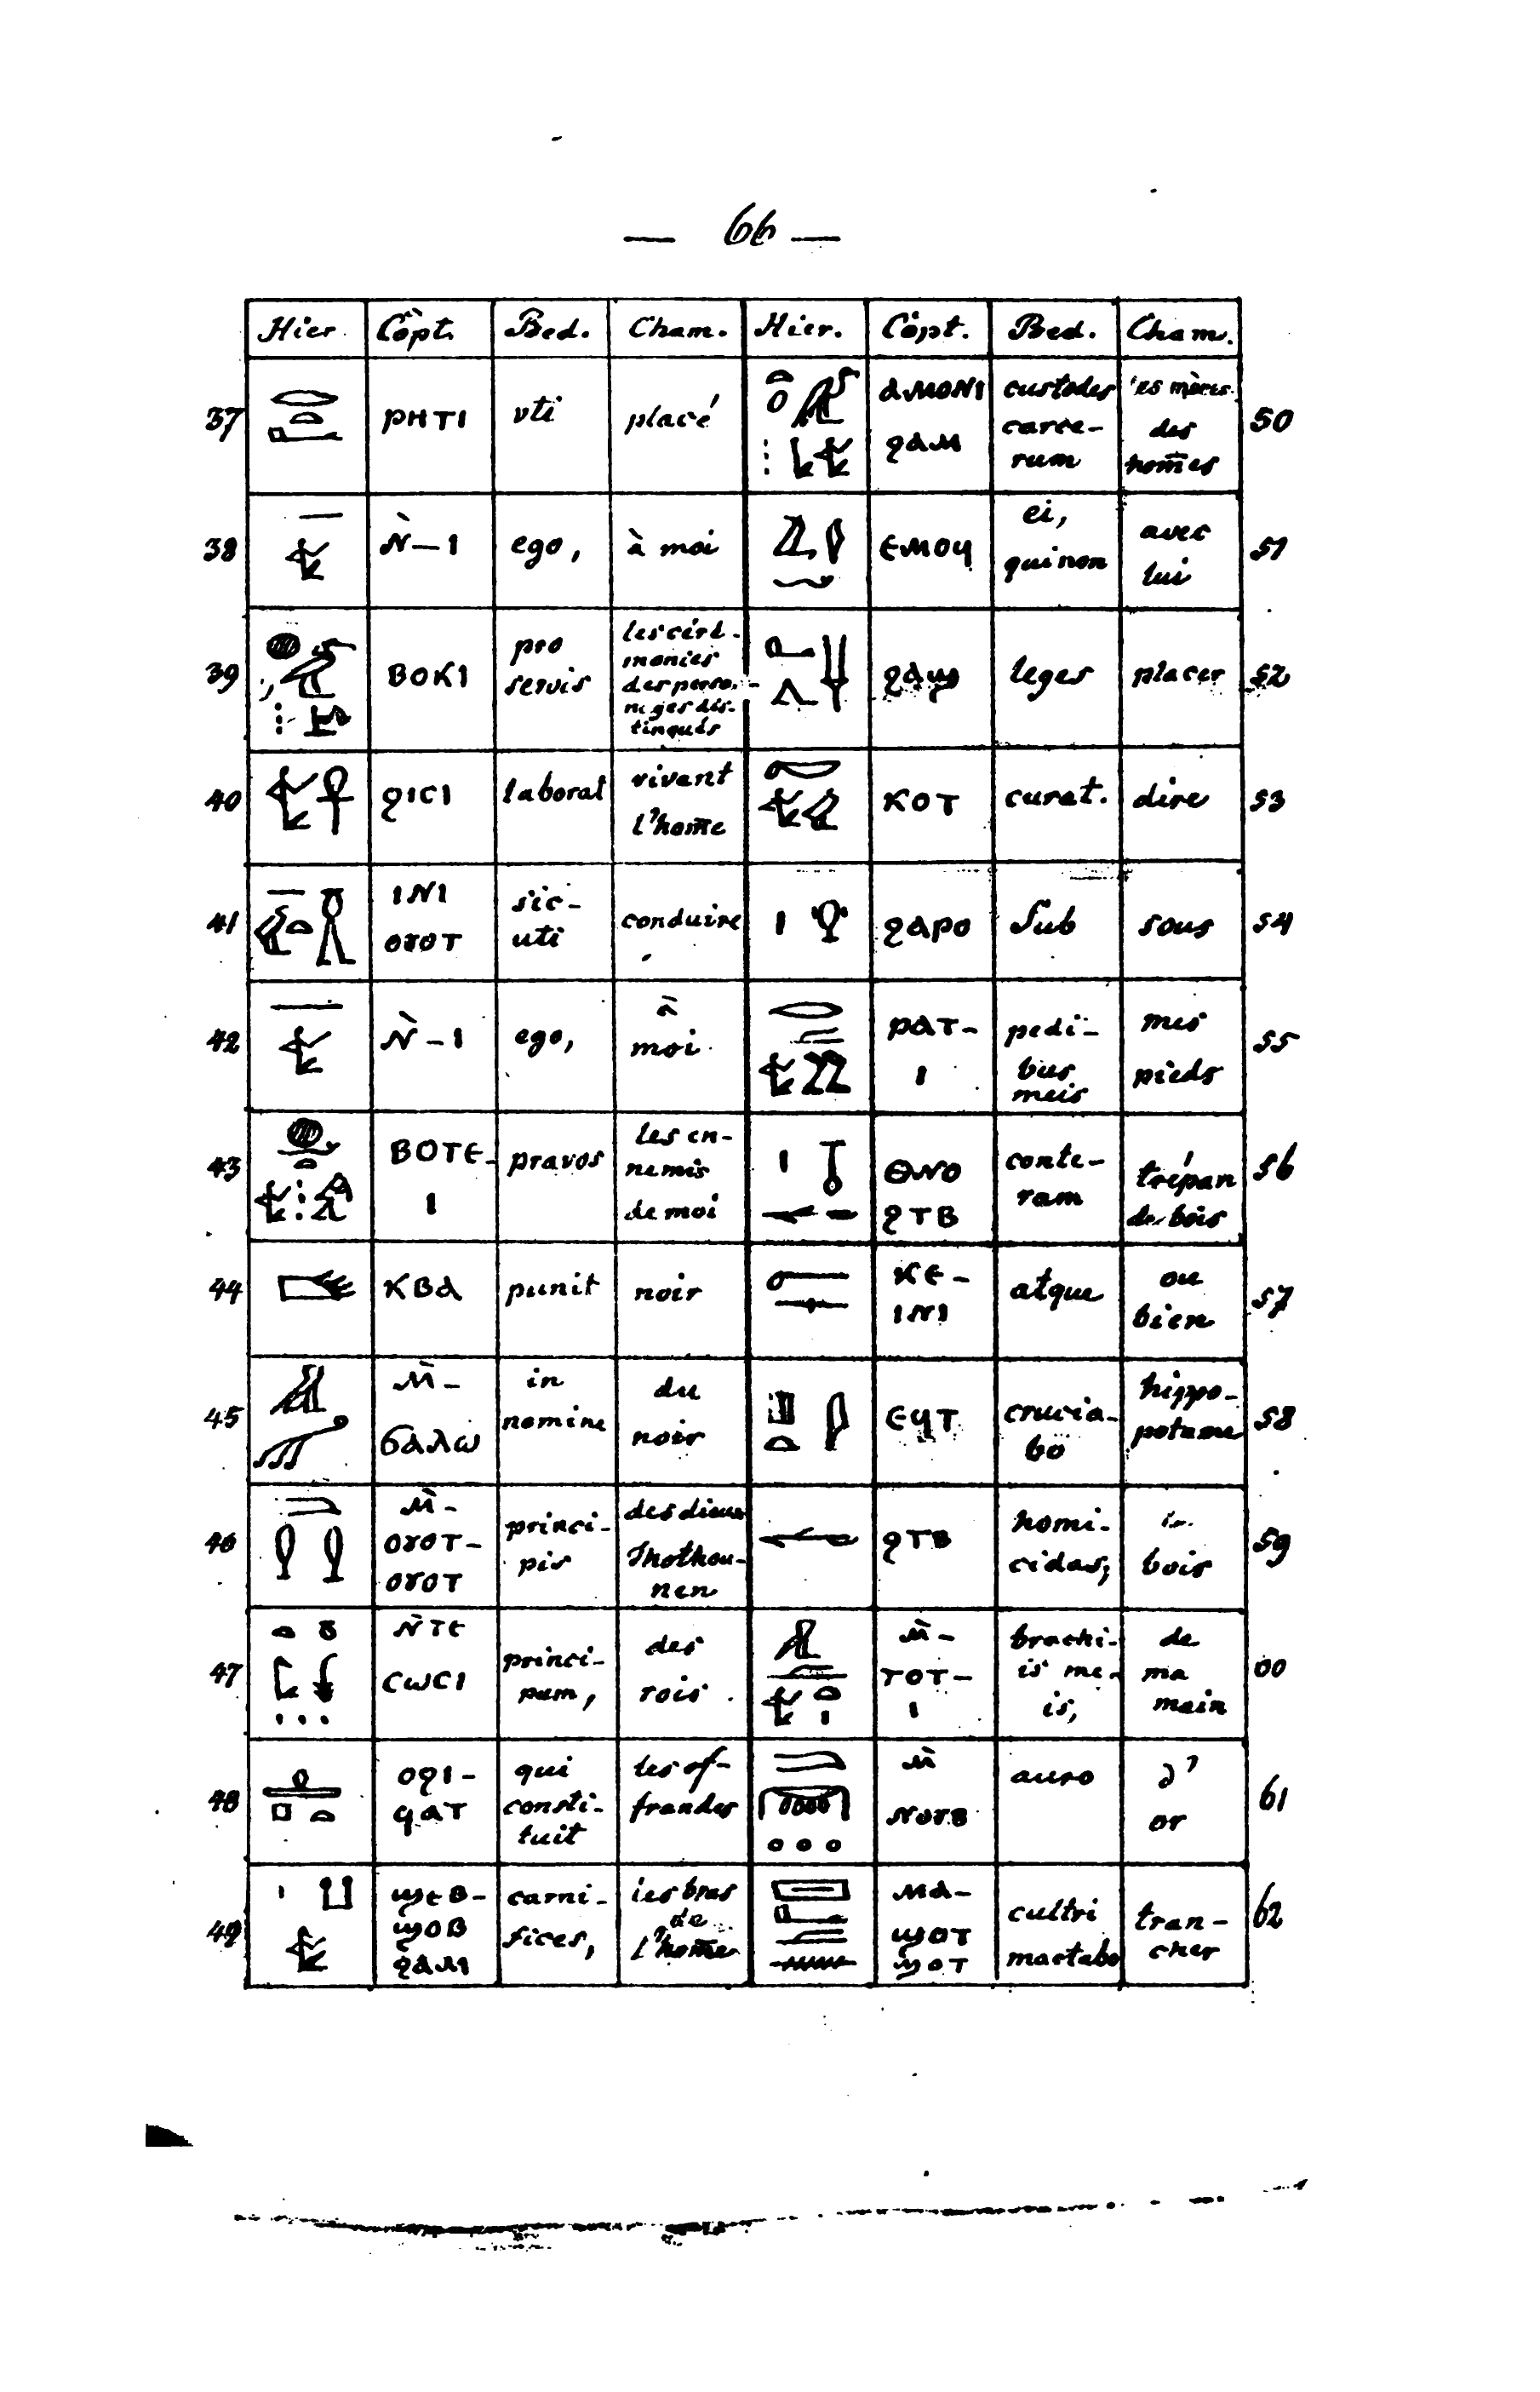 — 66 —
Hier. Copt. Bed. Cham. Hier. Copt. Bed. Cham.
37 ⲣⲏⲧⲓ uti placé ⲁⲙⲟⲛⲓ ϩⲁⲙ custodes carce-rum mères des hom̄es 50
38 Ⲛ̀—ⲓ ego, à moi ⲉⲙⲟϥ ei, qui non avec lui 51
39 ⲃⲟⲕⲓ pro servis les céré-monies des perso-nages dis-tingués ϩⲁϣ leges placer 52
40 ϩⲓⲥⲓ laborat vivant l'hom̄e ⲕⲟⲧ curat. dire 53
41 ⲓⲛⲓ ⲟⲩⲟⲧ sic-uti conduire ϩⲁⲣⲟ Sub sous 54
42 Ⲛ̀-ⲓ ego, à moi ⲣⲁⲧ-ⲓ pedi-bus meis mes pieds 55
43 ⲃⲟⲧⲉ-ⲓ pravos les en-nemis de moi ⲑⲛⲟ ϩⲧⲃ conte-ram trépan de bois 56
44 ⲕⲃⲁ punit noir ⲕⲉ-ⲓⲛⲓ atque ou bien 57
45 Ⲙ̀-ϭⲁⲗⲱ in nomine du noir ⲉϥⲧ crucia-bo hippo-potame 58
46 Ⲙ̀-ⲟⲩⲟⲧ-ⲟⲩⲟⲧ princi-pis des dieux Thothou-nen ϩⲧⲃ homi-cidas, bois 59
47 Ⲛ̀ⲧⲉ ⲥⲱⲥⲓ princi-pum, des rois Ⲙ̀-ⲧⲟⲧ-ⲓ brachi-is me-is, de ma main 60
48 ⲟϩⲓ-ϥⲁⲧ qui consti-tuit les of-frandes Ⲙ̀ ⲛⲟⲩⲃ auro d'or 61
49 ϣⲉⲃ-ϣⲟⲃ ϩⲁⲙ carni-fices, les bras de l'hom̄e ⲙⲁ-ϣⲟⲧ ϣⲟⲧ cultri mactabo tran-cher 62